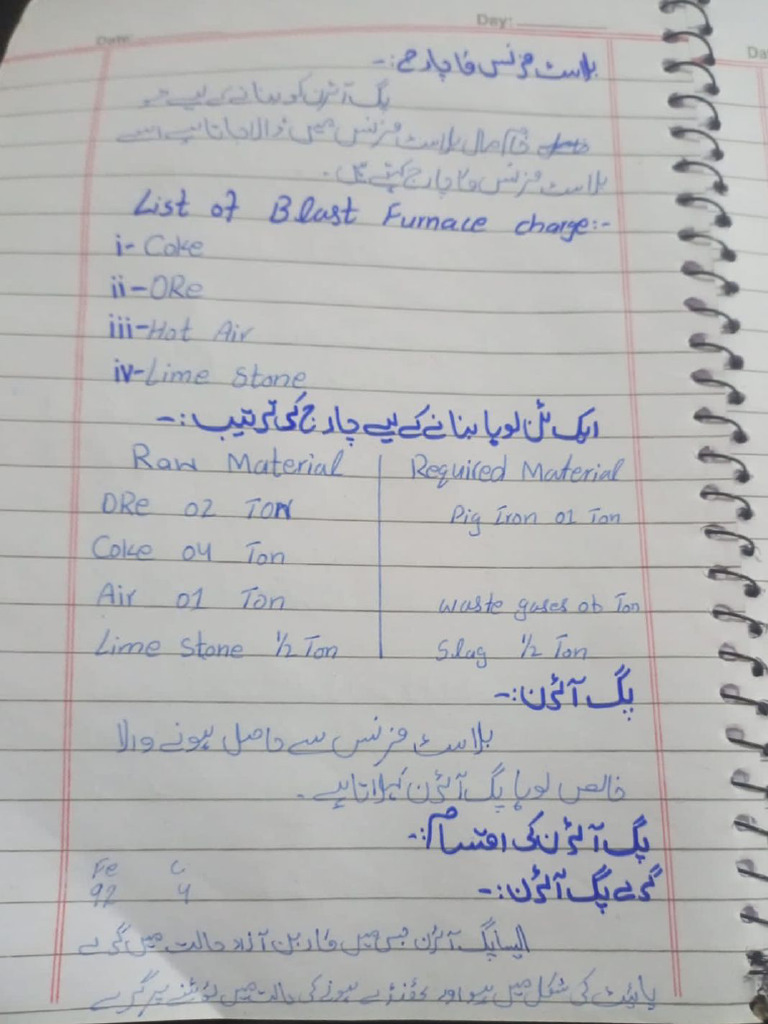 Day:
Date:
بلاسٹ فرنس کا چارج:-
پگ آئرن کو بنانے کے لیے جو
خام مال بلاسٹ فرنس میں ڈالا جاتا ہے اسے
بلاسٹ فرنس کا چارج کہتے ہیں۔
List of Blast Furnace charge:-
i- Coke
ii- ORe
iii- Hot Air
iv- Lime Stone
ایک ٹن لوہا بنانے کے لیے چارج کی ترتیب:-
Raw Material | Required Material
ORe 02 Ton | Pig Iron 01 Ton
Coke 04 Ton
Air 01 Ton | waste gases 06 Ton
Lime Stone ½ Ton | Slag ½ Ton
پگ آئرن:-
بلاسٹ فرنس سے حاصل ہونے والا
خالص لوہا پگ آئرن کہلاتا ہے۔
پگ آئرن کی اقسام:-
Fe C
92 4
گرے پگ آئرن:-
ایسا پگ آئرن جس میں کاربن آزاد حالت میں گرے
کی شکل میں ہو اور ٹھنڈے ہونے کی حالت میں ٹوٹنے پر گرے